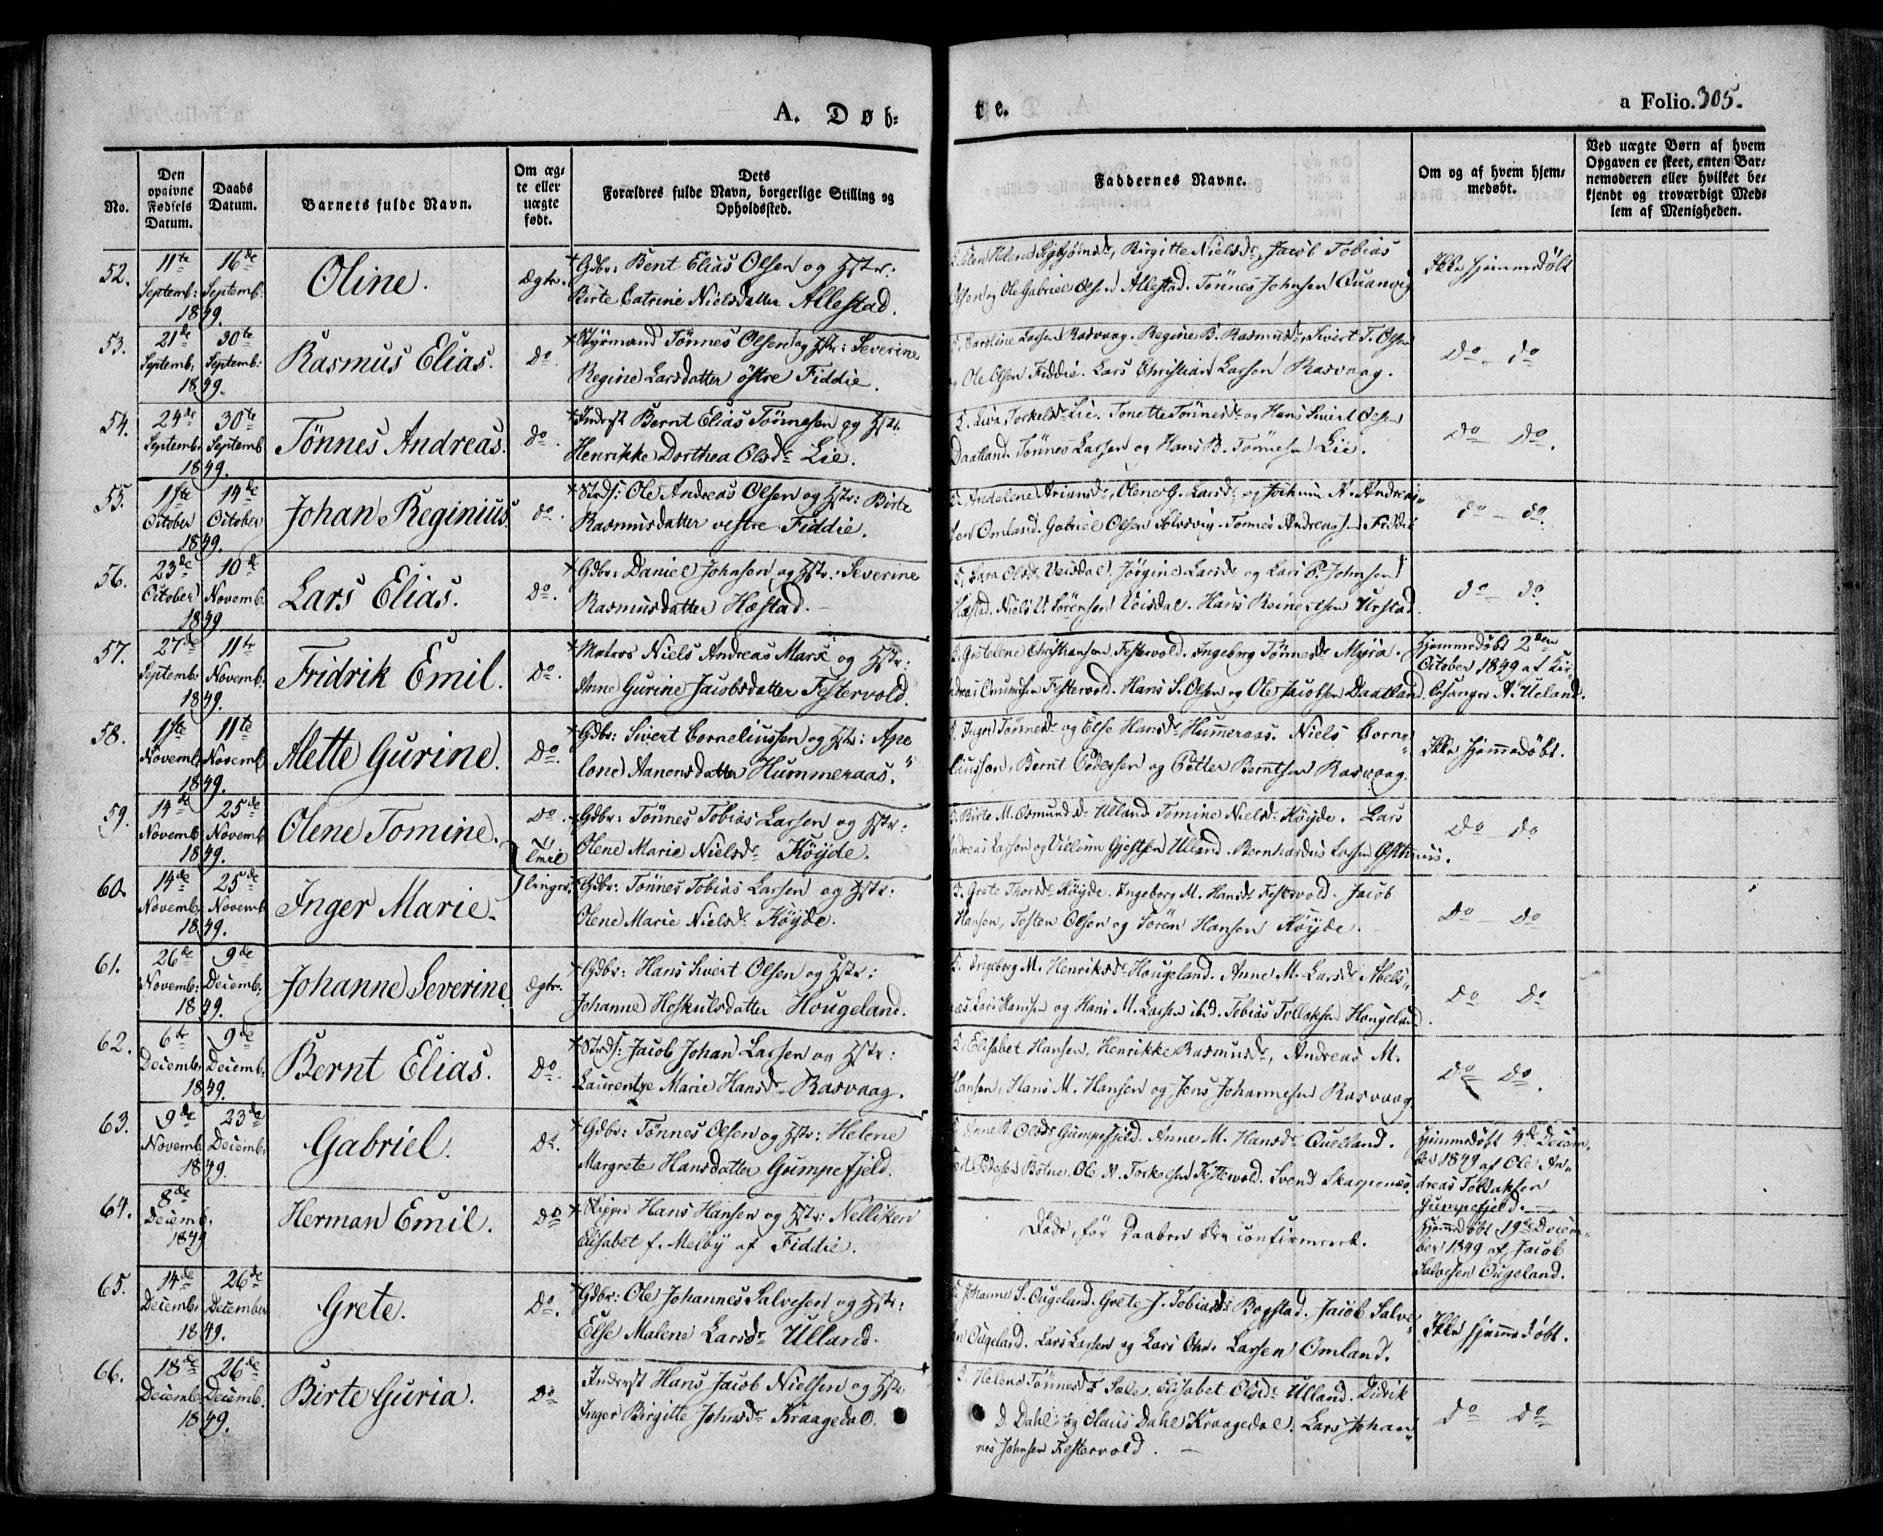 A. Døb-
te.
a Folio. 305.
No.
Den opgivne Fødsels Datum.
Daabs Datum.
Barnets fulde Navn.
Om ægte eller uægte født.
Dets Forældres fulde Navn, borgerlige Stilling og Opholdssted.
Faddernes Navne.
Om og af hvem hjemmedøbt.
Ved uægte Børn af hvem Opgaven er skeet, enten Barnemoderen eller hvilket bekjendt og troværdigt Medlem af Menigheden.
52. 11te Septemb: 1849. 16de Septemb: Oline. Ægte. Gdbr: Bent Elias Olsen og Hstr:
Birte Catrine Nielsdatter Allestad.
Birgitte Nielsd., Jacob Tobias
Olsen og Ole Gabriel Olsen Allestad. Tönnes Johnsen Quanvig
Ikke hjemmedøbt
53. 21de Septemb: 1849. 30te Septemb: Rasmus Elias. Do. Styrmand Tönnes Olsen og Hstr: Severine
Regine Larsdatter østre Fiddie.
Caroline Larsen Rasvaag. Regine B. Rasmusd. Sivert T. Olsen
og Ole Olsen Fiddie. Lars Christian Larsen Rasvaag.
Do - do
54. 24de Septemb: 1849. 30te Septemb Tönnes Andreas. Do. Inderst Bernt Elias Tönnesen og Hstr.
Henrikke Dorthea Olsd. Lie.
Torkelsd. Lie. Tonette Tönnesd. og Hans Sivert Olsen
Daatland. Tönnes Larsen og Hans B. Tönnesen Lie.
Do - Do.
55. 11te October 1849. 14de October Johan Reginius. do. Strds: Ole Andreas Olsen og Hstr: Birte
Rasmusdatter vestre Fiddie.
Andelene Ariansd., Olene G. Larsd. og Jochum A. Andrea-
sen Omland. Gabriel Olsen Solvsvig. Tönnes Andreassen Fiddie
do - do.
56. 23de October 1849 10de Novemb. Lars Elias. Do. Gdbr: Daniel Johnsen og Hstr: Severine
Rasmusdatter Hæstad.
Sara Olsd. Veisdal. Jörgine Larsd. og Lars P. Johnsen
Hæstad. Niels U. Sörensen Veisdal. Hans Reinertsen Urstad.
do - do.
57. 27de Septemb. 1849. 11te Novemb. Fridrik Emil. Do. Matros Niels Andreas Marx og Hstr:
Anne Gurine Jacobsdatter Festervold.
Gretelene Christiansen Festervold. Ingeborg Tönnesd. Myra.
Onumsen Festervold. Hans S. Olsen og Ole Jacobsen Daatland.
Hjemmedøbt 2den
October 1849 af Kir-
kesanger A. Ueland.
58. 1ste Novemb. 1849. 11te Novemb. Mette Gurine. Do. Gdbr: Sivert Corneliussen og Hstr: Ape-
lone Aanensdatter Hummeraas.
Inger Tönnesd. og Else Hansd. Hummeraas. Niels Corne-
liussen, Bernt Pedersen og Petter Berntsen Rasvaag.
Ikke hjemmedøbt.
59. 14de Novemb. 1849. 25de Novemb. Olene Tomine. Do. Gdbr: Tönnes Tobias Larsen og Hstr:
Olene Marie Nielsd. Köyde.
Birte M. Osmundsd. Ulland. Tomine Nielsd. Köyde. Lars
Andreas Larsen og Villum Gjertsen Ulland. Bernhardus Larsen
Do - Do
Tvil-
linger.
60. 14de Novemb. 1849. 25de Novemb. Inger Marie. Gdbr: Tönnes Tobias Larsen og Hstr:
Olene Marie Nielsd. Köyde.
Grete Thorsd. Köyde. Ingeborg M. Hansd. Festervold. Jacob
Hansen, Tosten Olsen og Sören Hansen Köyde.
Do - Do
61. 26de Novemb: 1849. 9de Decemb. Johanne Severine. Ægte. Gdbr: Hans Sivert Olsen og Hstr:
Johanne Hoskulsdatter Hougeland.
Ingeborg M. Henriksd. Hougeland. Anne M. Larsd. Abels-
næs. Lars Hansen og Hans M. Larsen ibid. Tobias Tollaksen Hougeland.
Do Do
62. 6te Decemb. 1849. 9de Decemb: Bernt Elias. Do. Strds: Jacob Johan Larsen og Hstr:
Laurentze Marie Hansd. Rasvaag.
Elisabet Hansen, Henrikke Rasmusd., Andreas M.
Hansen, Hans M. Hansen og Jens Johannesen Rasvaag.
Do Do.
63. 9de Novemb. 1849. 23de Decemb: Gabriel. Do. Gdbr: Tönnes Olsen og Hstr: Helene
Margrete Hansdatter Gumpefjeld.
Olsd. Gumpefjeld. Anne M. Hansd. Oueland.
Pedersen Botne. Ole N. Torkelsen Festervold. Svend Skarpenæs.
Hjemmedøbt 4de Decem-
ber 1849 af Ole An-
dreas Tollaksen
Gumpefjeld.
64. 8de Decemb. 1849 Herman Emil. Do Skipper Hans Hansen og Hstr: Nelliken
Elisabet f. Melby af Fiddie.
Döde, för Daaben blev confirmeret.
Hjemmedøbt 19de Decem-
ber 1849 af Jacob
Salvesen Ougeland.
65. 14de Decemb. 1849. 26de December Grete. Do. Gdbr: Ole Johannes Salvesen og Hstr:
Else Malene Larsd. Ulland.
Johanne S. Ougeland. Grete J. Tobiasd. Bogstad. Jacob Salve-
sen Ougeland. Lars Larsen og Lars Chr. Larsen Omland.
Ikke hjemmedøbt.
66. 18de Decemb: 1849. 26de Decemb. Birte Guria. Do Inderst Hans Jacob Nielsen og Hstr.
Inger Birgitte Johnsd. Kraagedal.
Helene Tönnesd. Sæle. Elisabet Olsd. Ulland. Didrik
D. Dahl og Olaus Dahl Kraagedal. Lars Johan-
nes Johnsen Festervold.
Do Do